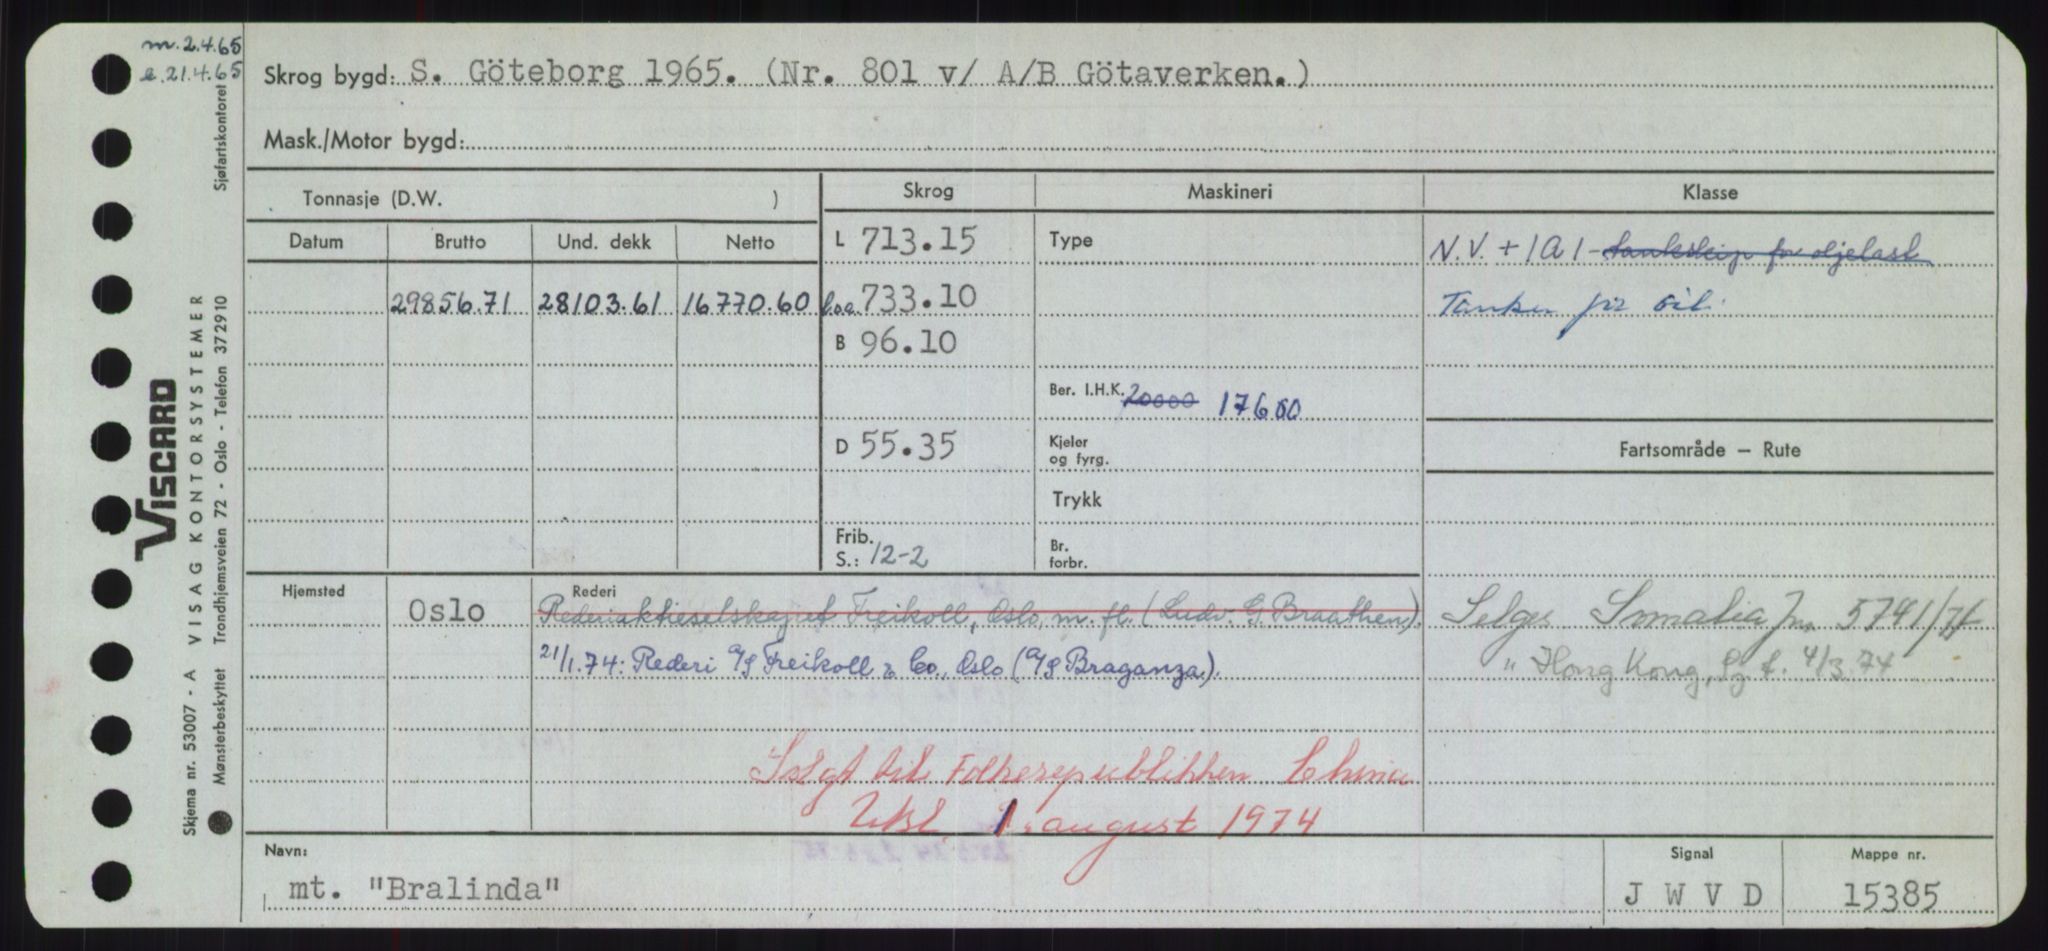 m. 2.4.65
e. 21.4.65
Skrog bygd: S. Göteborg 1965. (Nr. 801 v/ A/B Götaverken.)
Mask./Motor bygd:
Tonnasje (D.W. )
Skrog
Maskineri
Klasse
Datum
Brutto
Und. dekk
Netto
L 713.15
Type
N.V. + 1A1 - tankskip for oljelast
29856.71
28103.61
16770.60
loa. 733.10
Tanker for oil.
B 96.10
Ber. I.H.K. 20000 17600
D 55.35
Kjeler
og fyrg.
Fartsområde – Rute
Trykk
Frib.
S.: 12-2
Br.
forbr.
Hjemsted
Oslo
Rederi
Rederiaktieselskapet Freikoll, Oslo, m. fl. (Ludv. G. Braathen).
21/1.74: Rederi A/S Freikoll & Co., Oslo (A/S Braganza).
Selges Somalia Jnr 5741/74
" Hong Kong, 4/3.74
Solgt til Folkerepublikken China
Utsl. 1. august 1974
Navn:
mt. "Bralinda"
Signal
J W V D
Mappe nr.
15385
VISCARD
Skjema nr. 53007 - A VISAG KONTORSYSTEMER
Mønsterbeskyttet Trondhjemsveien 72 - Oslo - Telefon 372910 Sjøfartskontoret